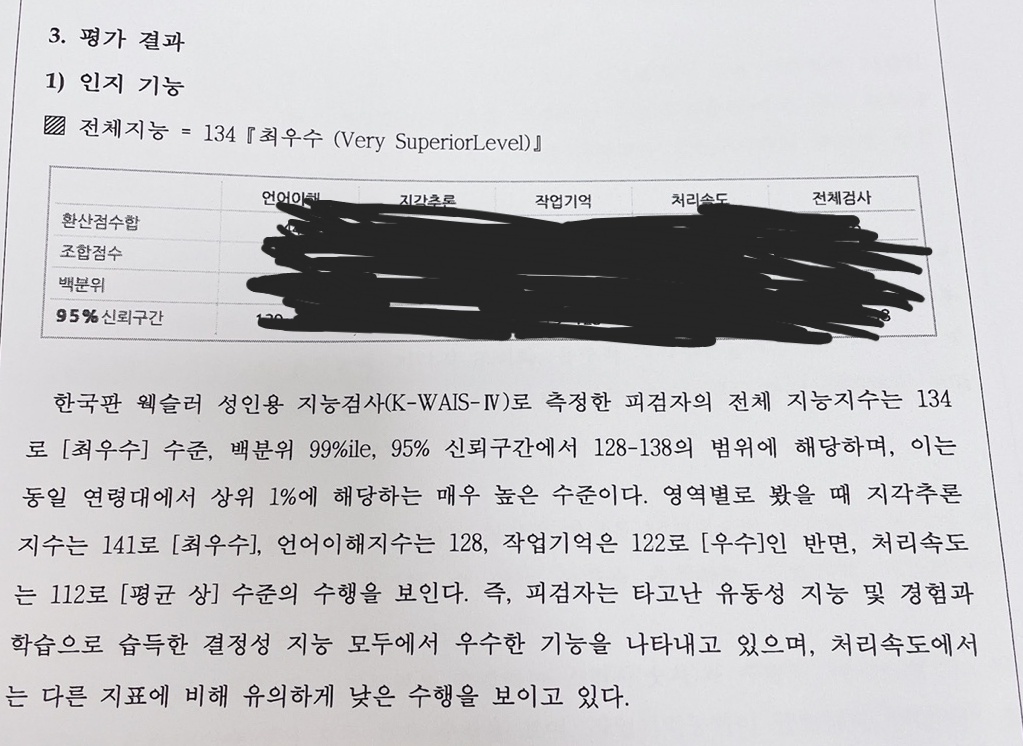 3. 평가 결과
1) 인지 기능
▨ 전체지능 = 134『최우수 (Very SuperiorLevel)』
언어이해 지각추론 작업기억 처리속도 전체검사
환산점수합
조합점수
백분위
95%신뢰구간
한국판 웩슬러 성인용 지능검사(K-WAIS-Ⅳ)로 측정한 피검자의 전체 지능지수는 134
로 [최우수] 수준, 백분위 99%ile, 95% 신뢰구간에서 128-138의 범위에 해당하며, 이는
동일 연령대에서 상위 1%에 해당하는 매우 높은 수준이다. 영역별로 봤을 때 지각추론
지수는 141로 [최우수], 언어이해지수는 128, 작업기억은 122로 [우수]인 반면, 처리속도
는 112로 [평균 상] 수준의 수행을 보인다. 즉, 피검자는 타고난 유동성 지능 및 경험과
학습으로 습득한 결정성 지능 모두에서 우수한 기능을 나타내고 있으며, 처리속도에서
는 다른 지표에 비해 유의하게 낮은 수행을 보이고 있다.